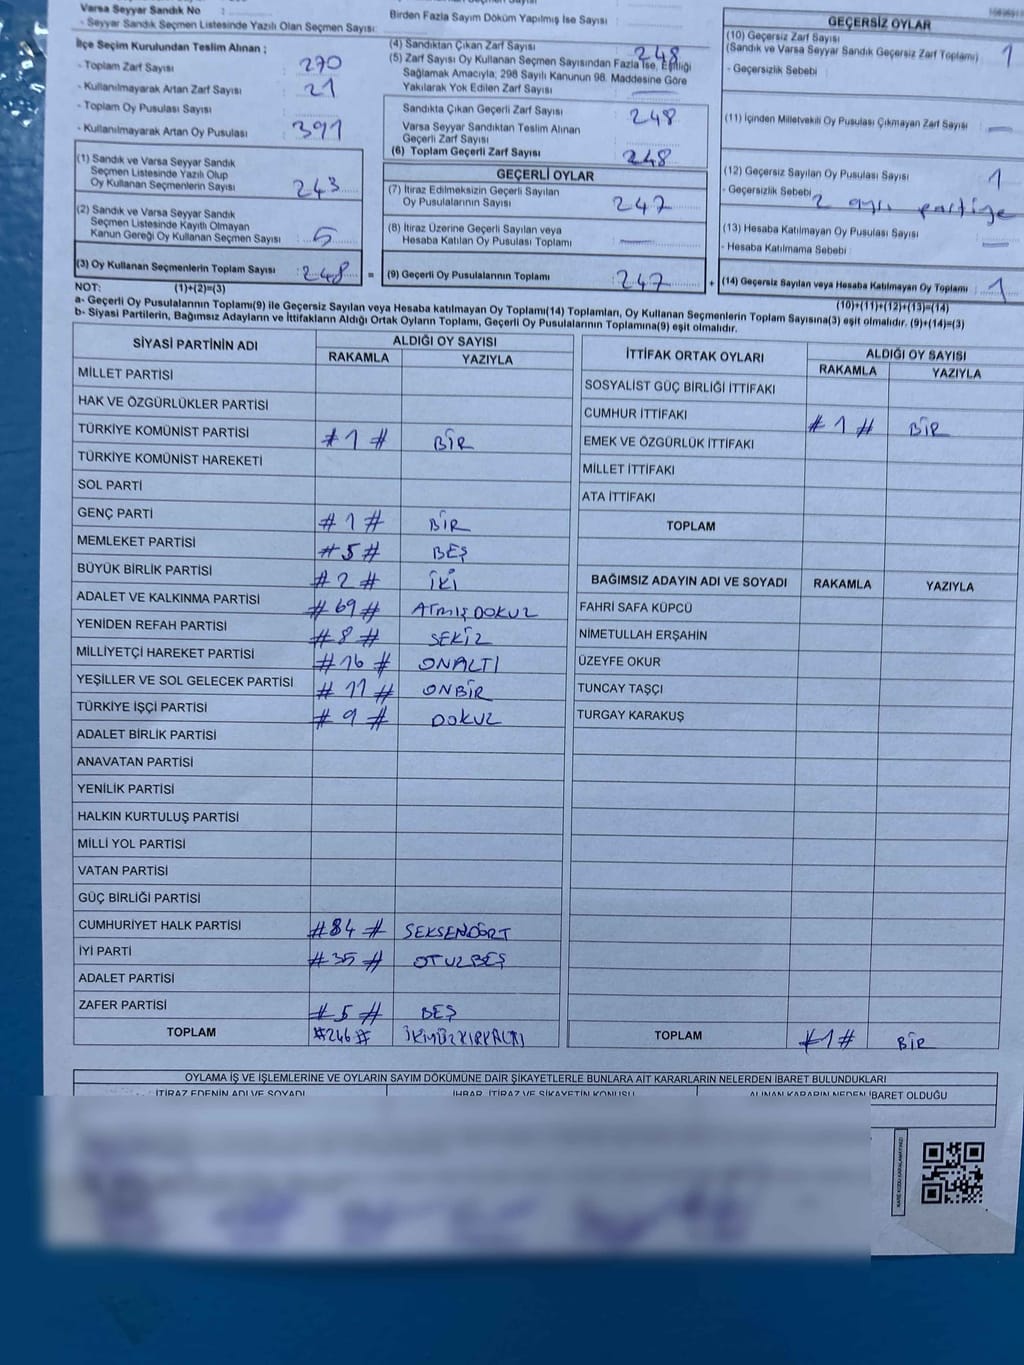 Varsa Seyyar Sandık No :
- Seyyar Sandık Seçmen Listesinde Yazılı Olan Seçmen Sayısı:
İlçe Seçim Kurulundan Teslim Alınan ;
- Toplam Zarf Sayısı : 270
- Kullanılmayarak Artan Zarf Sayısı : 21
- Toplam Oy Pusulası Sayısı :
- Kullanılmayarak Artan Oy Pusulası : 391
(1) Sandık ve Varsa Seyyar Sandık
Seçmen Listesinde Yazılı Olup
Oy Kullanan Seçmenlerin Sayısı : 243
(2) Sandık ve Varsa Seyyar Sandık
Seçmen Listesinde Kayıtlı Olmayan
Kanun Gereği Oy Kullanan Seçmen Sayısı : 5
(3) Oy Kullanan Seçmenlerin Toplam Sayısı : 248 =
Birden Fazla Sayım Döküm Yapılmış İse Sayısı :
(4) Sandıktan Çıkan Zarf Sayısı : 248
(5) Zarf Sayısı Oy Kullanan Seçmen Sayısından Fazla İse, Eşitliği
Sağlamak Amacıyla; 298 Sayılı Kanunun 98. Maddesine Göre
Yakılarak Yok Edilen Zarf Sayısı : —
Sandıkta Çıkan Geçerli Zarf Sayısı : 248
Varsa Seyyar Sandıktan Teslim Alınan
Geçerli Zarf Sayısı :
(6) Toplam Geçerli Zarf Sayısı : 248
GEÇERLİ OYLAR
(7) İtiraz Edilmeksizin Geçerli Sayılan
Oy Pusulalarının Sayısı : 247
(8) İtiraz Üzerine Geçerli Sayılan veya
Hesaba Katılan Oy Pusulası Toplamı : —
(9) Geçerli Oy Pusulalarının Toplamı : 247 +
GEÇERSİZ OYLAR
(10) Geçersiz Zarf Sayısı
(Sandık ve Varsa Seyyar Sandık Geçersiz Zarf Toplamı) : 1
- Geçersizlik Sebebi :
(11) İçinden Milletvekili Oy Pusulası Çıkmayan Zarf Sayısı : —
(12) Geçersiz Sayılan Oy Pusulası Sayısı : 1
- Geçersizlik Sebebi : 2 ayrı partiye
(13) Hesaba Katılmayan Oy Pusulası Sayısı : —
- Hesaba Katılmama Sebebi :
(14) Geçersiz Sayılan veya Hesaba Katılmayan Oy Toplamı : 1
NOT: (1)+(2)=(3) (10)+(11)+(12)+(13)=(14)
a- Geçerli Oy Pusulalarının Toplamı(9) ile Geçersiz Sayılan veya Hesaba katılmayan Oy Toplamı(14) Toplamları, Oy Kullanan Seçmenlerin Toplam Sayısına(3) eşit olmalıdır. (9)+(14)=(3)
b- Siyasi Partilerin, Bağımsız Adayların ve İttifakların Aldığı Ortak Oyların Toplamı, Geçerli Oy Pusulalarının Toplamına(9) eşit olmalıdır.
SİYASİ PARTİNİN ADI ALDIĞI OY SAYISI
RAKAMLA YAZIYLA
MİLLET PARTİSİ
HAK VE ÖZGÜRLÜKLER PARTİSİ
TÜRKİYE KOMÜNİST PARTİSİ #1# BİR
TÜRKİYE KOMÜNİST HAREKETİ
SOL PARTİ
GENÇ PARTİ #1# BİR
MEMLEKET PARTİSİ #5# BEŞ
BÜYÜK BİRLİK PARTİSİ #2# İKİ
ADALET VE KALKINMA PARTİSİ #69# ATMIŞDOKUZ
YENİDEN REFAH PARTİSİ #8# SEKİZ
MİLLİYETÇİ HAREKET PARTİSİ #16# ONALTI
YEŞİLLER VE SOL GELECEK PARTİSİ #11# ONBİR
TÜRKİYE İŞÇİ PARTİSİ #9# DOKUZ
ADALET BİRLİK PARTİSİ
ANAVATAN PARTİSİ
YENİLİK PARTİSİ
HALKIN KURTULUŞ PARTİSİ
MİLLİ YOL PARTİSİ
VATAN PARTİSİ
GÜÇ BİRLİĞİ PARTİSİ
CUMHURİYET HALK PARTİSİ #84# SEKSENDÖRT
İYİ PARTİ #35# OTUZBEŞ
ADALET PARTİSİ
ZAFER PARTİSİ #5# BEŞ
TOPLAM #246# İKİYÜZKIRKALTI
İTTİFAK ORTAK OYLARI ALDIĞI OY SAYISI
RAKAMLA YAZIYLA
SOSYALİST GÜÇ BİRLİĞİ İTTİFAKI
CUMHUR İTTİFAKI #1# BİR
EMEK VE ÖZGÜRLÜK İTTİFAKI
MİLLET İTTİFAKI
ATA İTTİFAKI
TOPLAM
BAĞIMSIZ ADAYIN ADI VE SOYADI RAKAMLA YAZIYLA
FAHRİ SAFA KÜPCÜ
NİMETULLAH ERŞAHİN
ÜZEYFE OKUR
TUNCAY TAŞÇI
TURGAY KARAKUŞ
TOPLAM #1# BİR
OYLAMA İŞ VE İŞLEMLERİNE VE OYLARIN SAYIM DÖKÜMÜNE DAİR ŞİKAYETLERLE BUNLARA AİT KARARLARIN NELERDEN İBARET BULUNDUKLARI
İTİRAZ EDENİN ADI VE SOYADI İHBAR, İTİRAZ VE ŞİKAYETİN KONUSU ALINAN KARARIN NEDEN İBARET OLDUĞU
KARE KODU KARALAMAYINIZ!